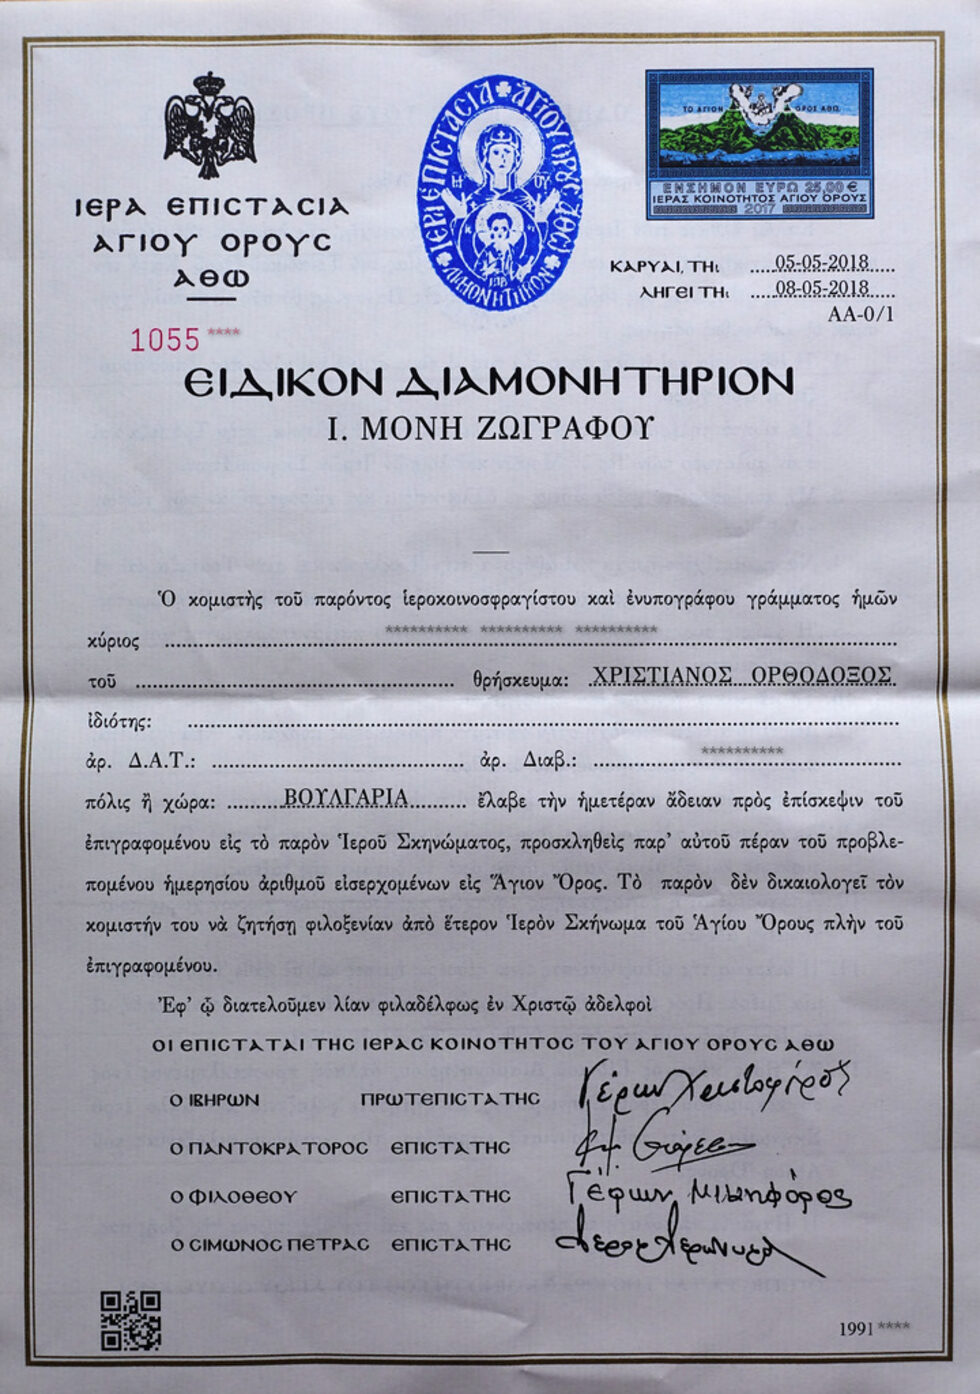 ΙΕΡΑ ΕΠΙCΤΑCΙΑ
ΑΓΙΟΥ ΟΡΟΥC
ΑΘΩ
1055****
ΙΕΡΑ ΕΠΙCΤΑCΙΑ ΑΓΙΟΥ ΟΡΟΥC ΑΘΩ
ΔΙΑΜΟΝΗΤΗΡΙΟΝ
ΤΟ ΑΓΙΟΝ ΟΡΟΣ ΑΘΩ
ΕΝΣΗΜΟΝ ΕΥΡΩ 25,00 €
ΙΕΡΑΣ ΚΟΙΝΟΤΗΤΟΣ ΑΓΙΟΥ ΟΡΟΥΣ
2017
ΚΑΡΥΑΙ, ΤΗ: 05-05-2018
ΛΗΓΕΙ ΤΗ: 08-05-2018
ΑΑ-0/1
ΕΙΔΙΚΟΝ ΔΙΑΜΟΝΗΤΗΡΙΟΝ
Ι. ΜΟΝΗ ΖΩΓΡΑΦΟΥ
Ὁ κομιστὴς τοῦ παρόντος ἱεροκοινοσφραγίστου καὶ ἐνυπογράφου γράμματος ἡμῶν
κύριος ********** ********** **********
τοῦ ........ θρήσκευμα: ΧΡΙΣΤΙΑΝΟΣ ΟΡΘΟΔΟΞΟΣ
ἰδιότης: ........
ἀρ. Δ.Α.Τ.: ........ ἀρ. Διαβ.: **********
πόλις ἢ χώρα: ΒΟΥΛΓΑΡΙΑ ἔλαβε τὴν ἡμετέραν ἄδειαν πρὸς ἐπίσκεψιν τοῦ
ἐπιγραφομένου εἰς τὸ παρὸν Ἱεροῦ Σκηνώματος, προσκληθεὶς παρ’ αὐτοῦ πέραν τοῦ προβλε-
πομένου ἡμερησίου ἀριθμοῦ εἰσερχομένων εἰς Ἅγιον Ὄρος. Τὸ παρὸν δὲν δικαιολογεῖ τὸν
κομιστήν του νὰ ζητήσῃ φιλοξενίαν ἀπὸ ἕτερον Ἱερὸν Σκήνωμα τοῦ Ἁγίου Ὄρους πλὴν τοῦ
ἐπιγραφομένου.
Ἐφ’ ᾧ διατελοῦμεν λίαν φιλαδέλφως ἐν Χριστῷ ἀδελφοὶ
ΟΙ ΕΠΙCΤΑΤΑΙ ΤΗC ΙΕΡΑC ΚΟΙΝΟΤΗΤΟC ΤΟΥ ΑΓΙΟΥ ΟΡΟΥC ΑΘΩ
Ο ΙΒΗΡΩΝ ΠΡΩΤΕΠΙCΤΑΤΗC Γέρων Χριστοφόρος
Ο ΠΑΝΤΟΚΡΑΤΟΡΟC ΕΠΙCΤΑΤΗC
Ο ΦΙΛΟΘΕΟΥ ΕΠΙCΤΑΤΗC Γέρων Νικηφόρος
Ο CΙΜΩΝΟC ΠΕΤΡΑC ΕΠΙCΤΑΤΗC
1991****